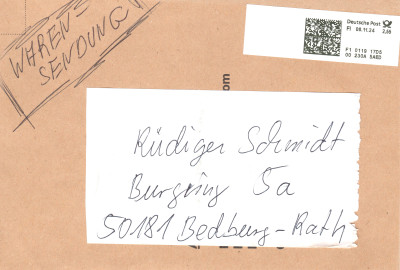 WAREN-
SENDUNG
Deutsche Post
FI 08.11.24 2,55
F1 0119 17D5
00 230A 5AED
om
Rüdiger Schmidt
Burgring 5a
50181 Bedburg-Rath